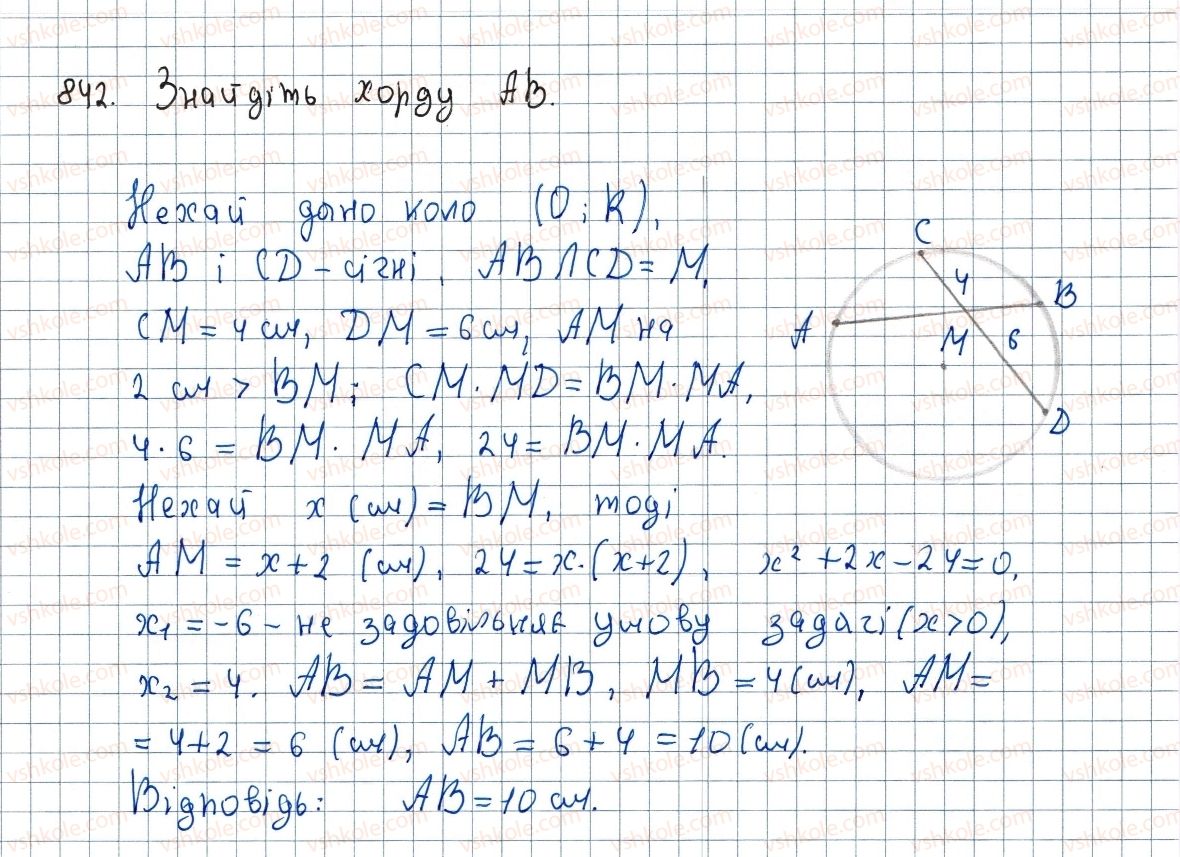 842. Знайдіть хорду AB.
Нехай дано коло (O; R),
AB і CD – січні, AB ∩ CD = M,
CM = 4 см, DM = 6 см, AM на
2 см > BM; CM · MD = BM · MA,
4 · 6 = BM · MA, 24 = BM · MA.
Нехай x (см) = BM, тоді
AM = x + 2 (см), 24 = x · (x + 2), x² + 2x – 24 = 0,
x₁ = –6 – не задовільняє умову задачі (x > 0),
x₂ = 4. AB = AM + MB, MB = 4 (см), AM =
= 4 + 2 = 6 (см), AB = 6 + 4 = 10 (см).
Відповідь: AB = 10 см.
C
4
B
A
M
6
D
vshkole.com